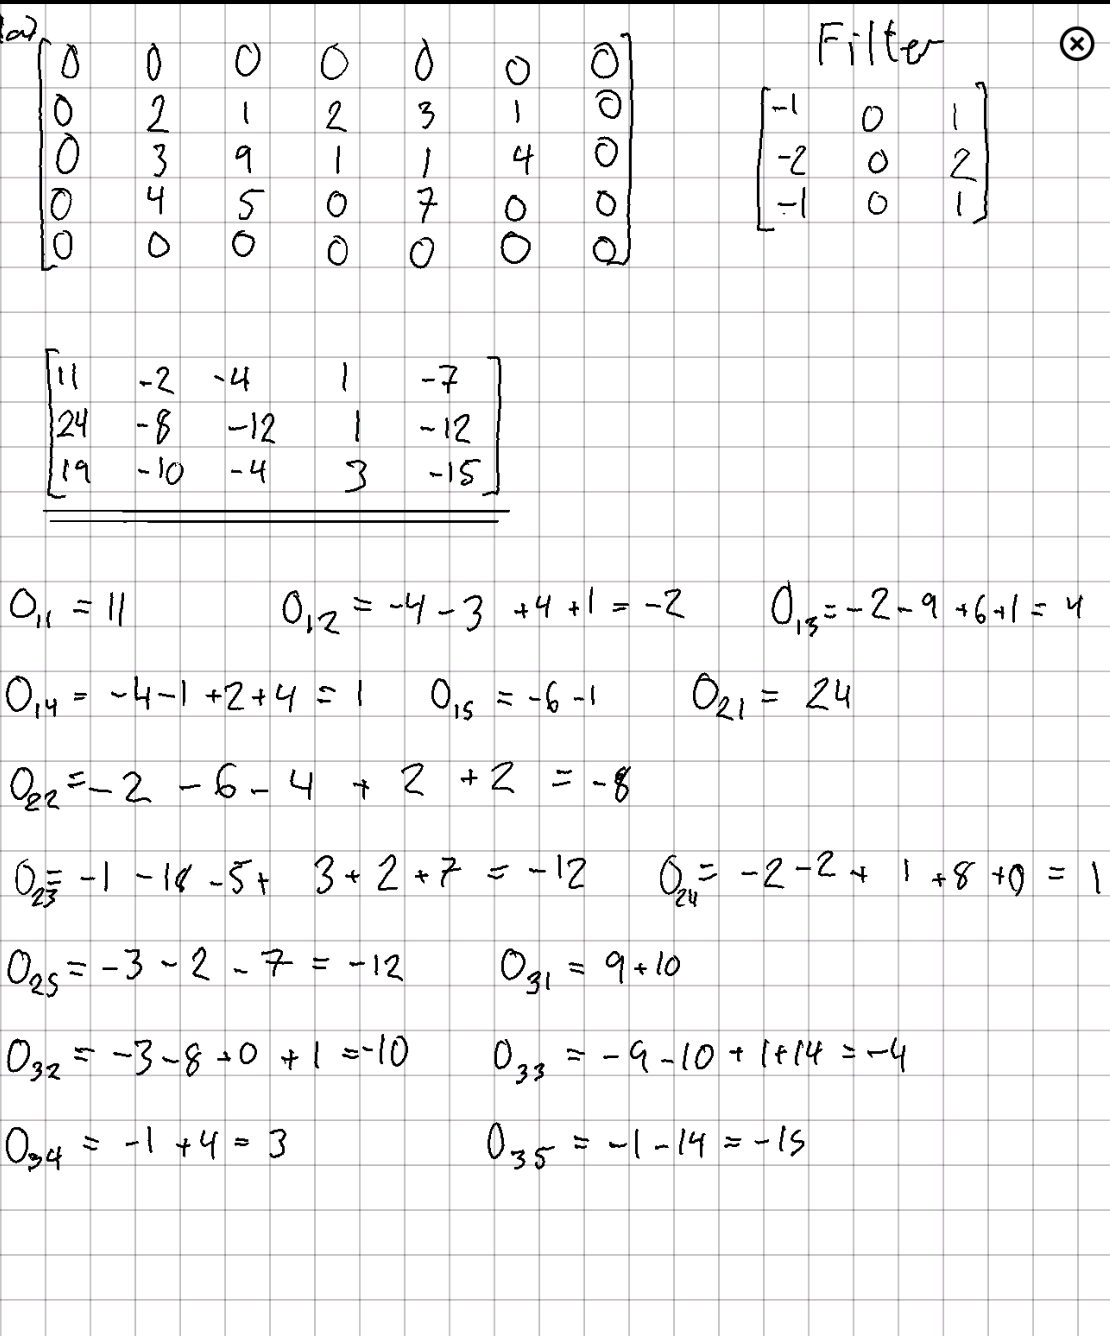 1a)
Filter
0 0 0 0 0 0 0
0 2 1 2 3 1 0
0 3 9 1 1 4 0
0 4 5 0 7 0 0
0 0 0 0 0 0 0
-1 0 1
-2 0 2
-1 0 1
11 -2 -4 1 -7
24 -8 -12 1 -12
19 -10 -4 3 -15
O11 = 11 O12 = -4 - 3 +4 +1 = -2 O13 = -2 - 9 +6 +1 = 4
O14 = -4 -1 +2 +4 = 1 O15 = -6 -1 O21 = 24
O22 = -2 - 6 - 4 + 2 + 2 = -8
O23 = -1 -18 -5 + 3 + 2 + 7 = -12 O24 = -2 -2 + 1 +8 +0 = 1
O25 = -3 - 2 - 7 = -12 O31 = 9 + 10
O32 = -3 - 8 +0 + 1 = -10 O33 = -9 -10 + 1 + 14 = -4
O34 = -1 +4 = 3 O35 = -1 -14 = -15